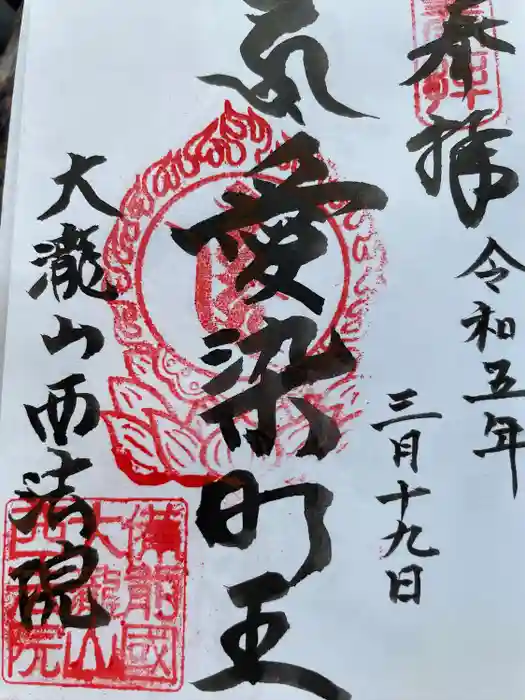 奉拝
令和五年
三月十九日
愛染明王
大瀧山西法院
備前國
大瀧山
西法院